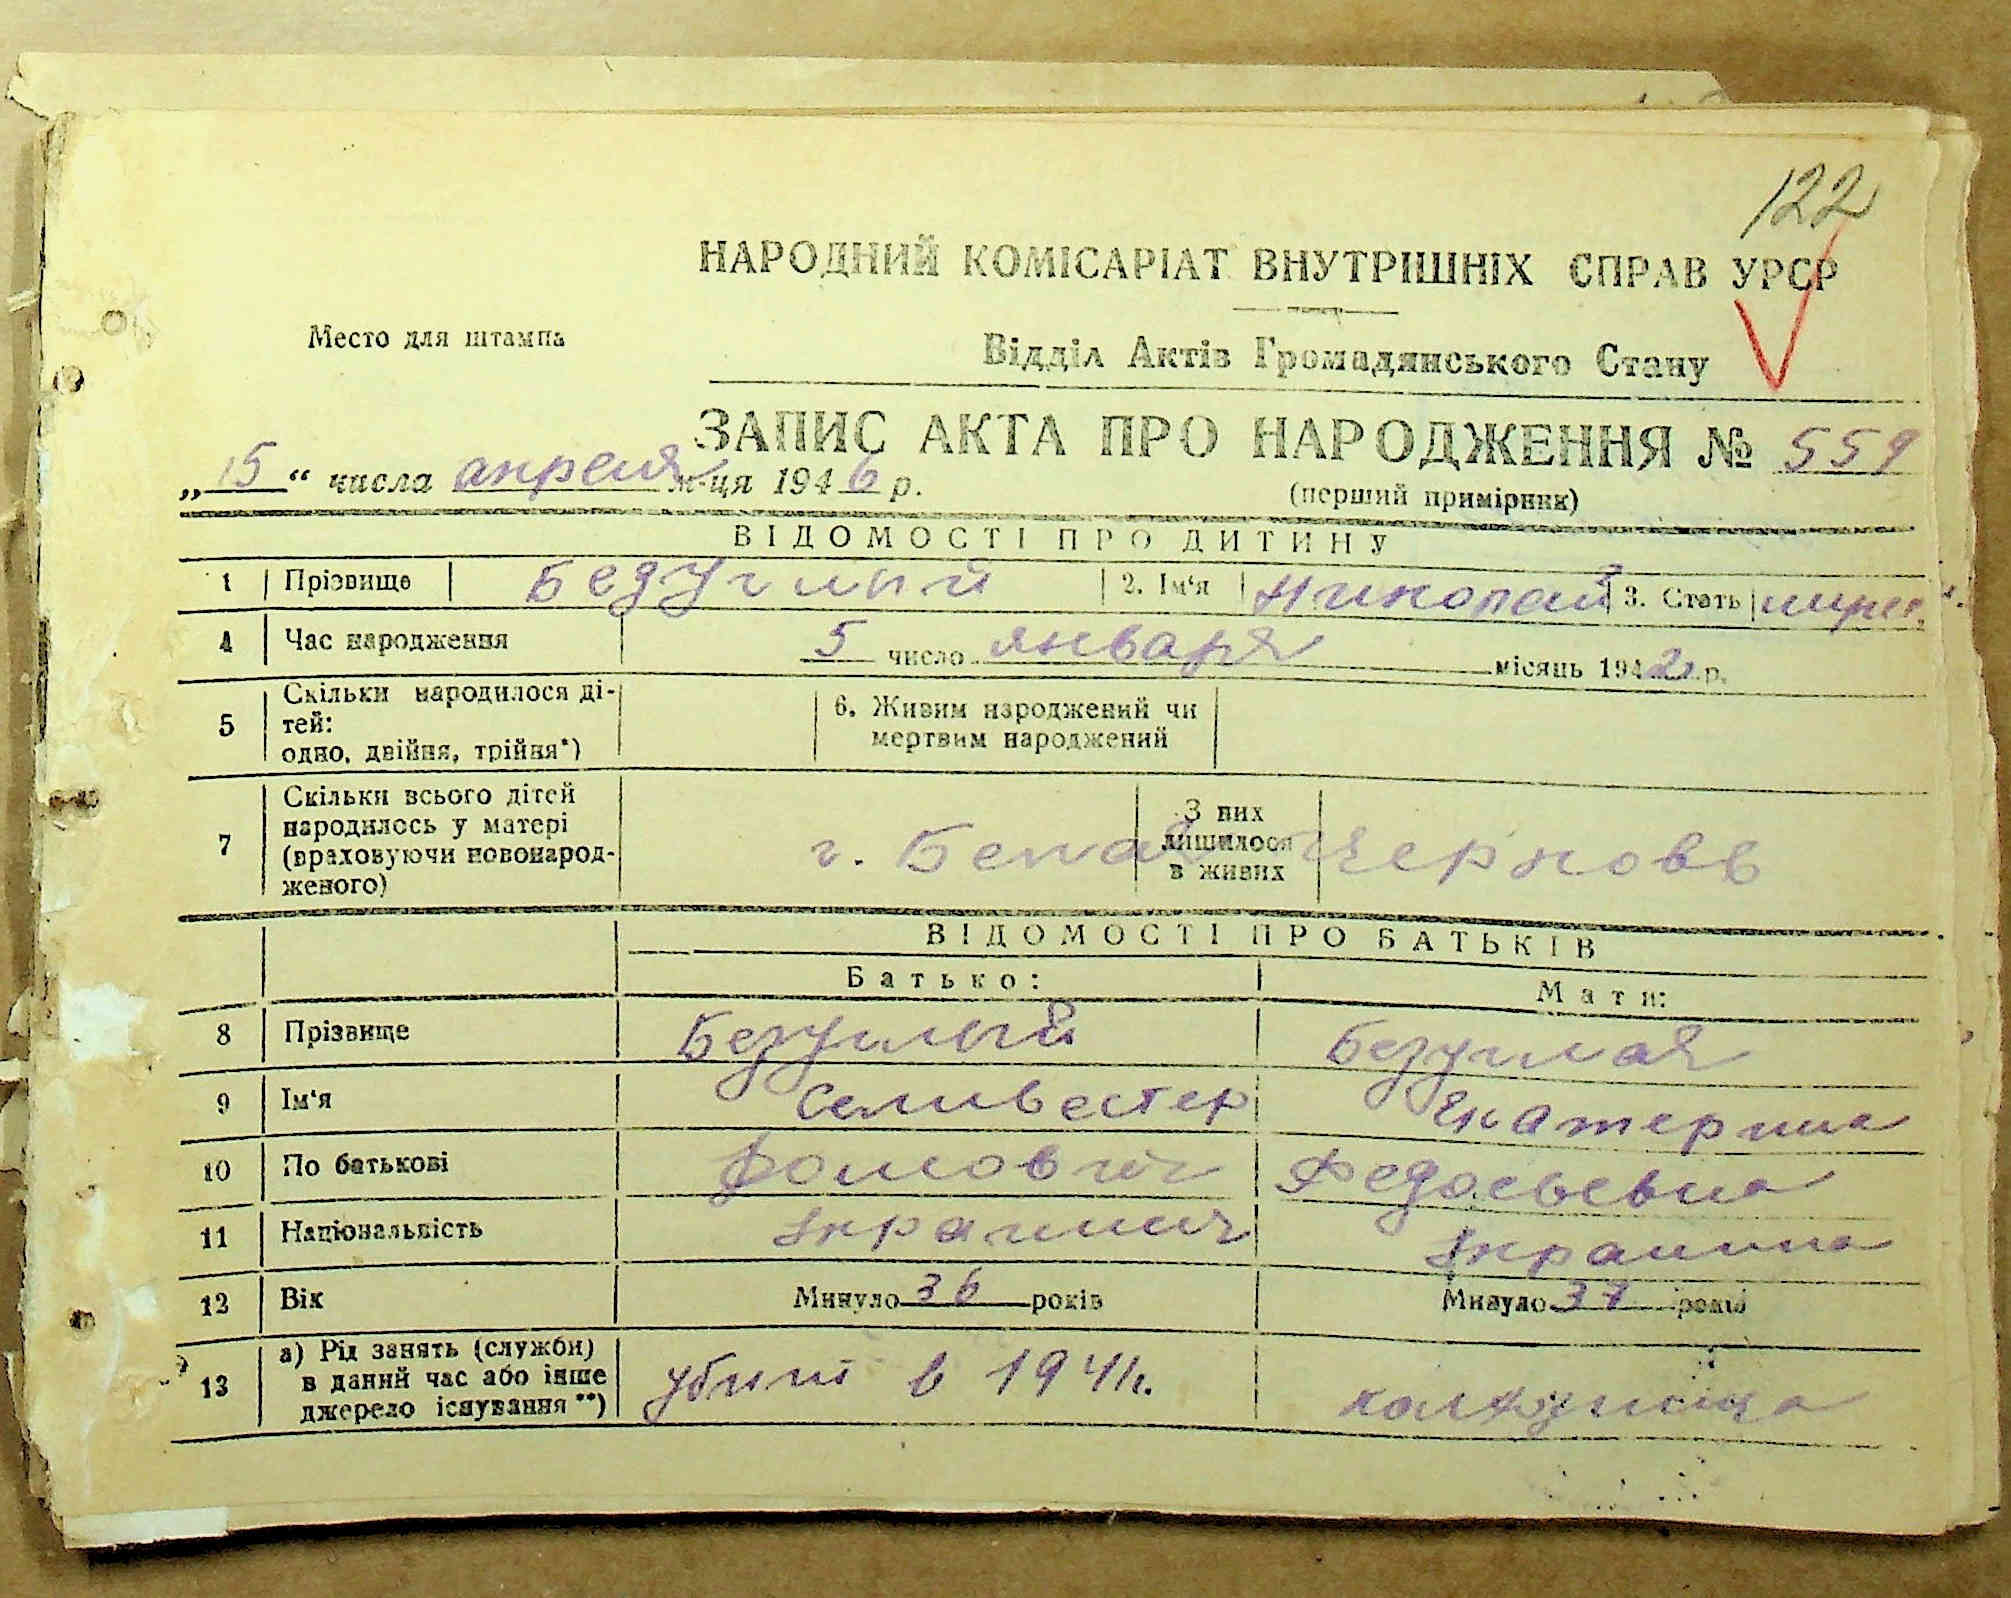 122
НАРОДНИЙ КОМІСАРІАТ ВНУТРІШНІХ СПРАВ УРСР
Место для штампа
Відділ Актів Громадянського Стану
ЗАПИС АКТА ПРО НАРОДЖЕННЯ № 559
„15“ числа апреля м-ця 1946 р.
(перший примірник)
ВІДОМОСТІ ПРО ДИТИНУ
1 Прізвище Безуглый 2. Ім'я Николай 3. Стать
4 Час народження 5 число января місяць 1942 р.
5 Скільки народилося дітей: одно, двійня, трійня*) 6. Живим народжений чи мертвим народжений
7 Скільки всього дітей народилось у матері (враховуючи новонародженого) З них лишилося в живих
г. Белая Церковь
ВІДОМОСТІ ПРО БАТЬКІВ
Батько: Мати:
8 Прізвище Безуглый Безуглая
9 Ім'я Селивестер Екатерина
10 По батькові Фомович Федосьевна
11 Національність Украинец Украинка
12 Вік Минуло 36 років Минуло 37 років
13 а) Рід занять (служби) в даний час або інше джерело існування**) убит в 1941г. колхозница